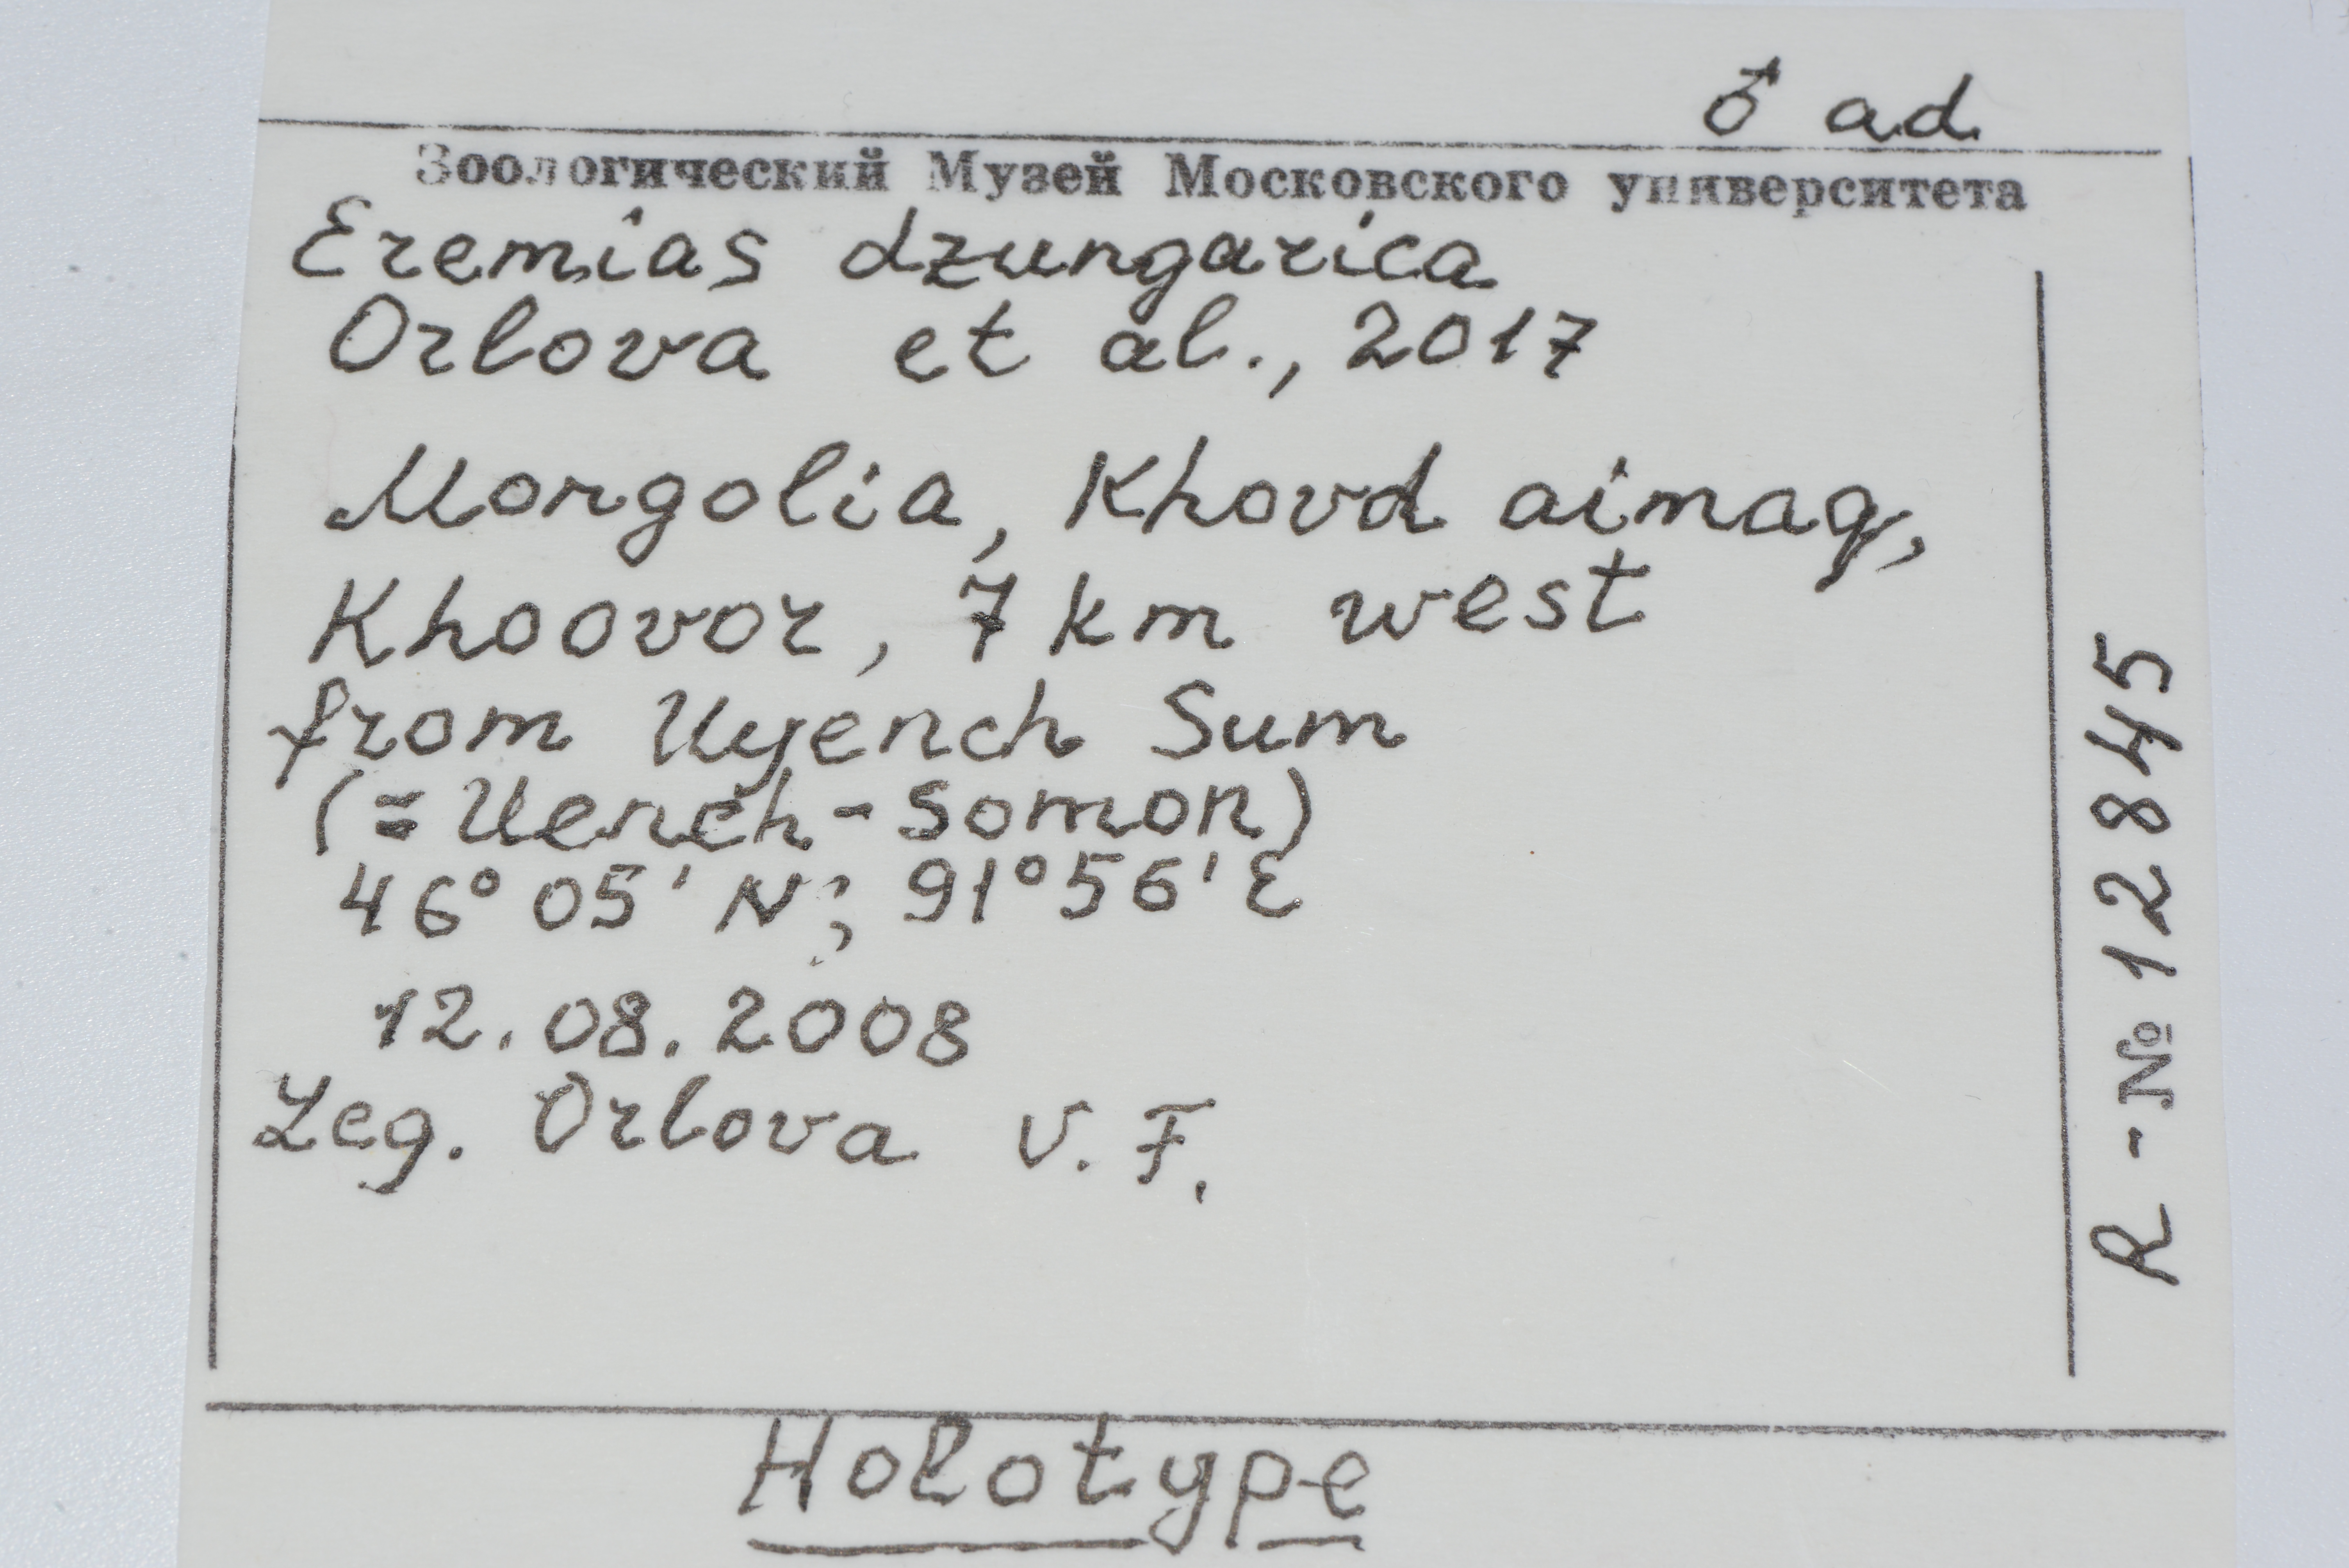 ♂ ad.
Зоологический Музей Московского университета
Eremias dzungarica
Orlova et al., 2017
Mongolia, Khovd aimag,
Khoovor, 7 km west
from Uyench Sum
(= Uench-Somon)
46° 05' N; 91° 56' E
12.08.2008
Leg. Orlova V. F.
R - № 12845
Holotype